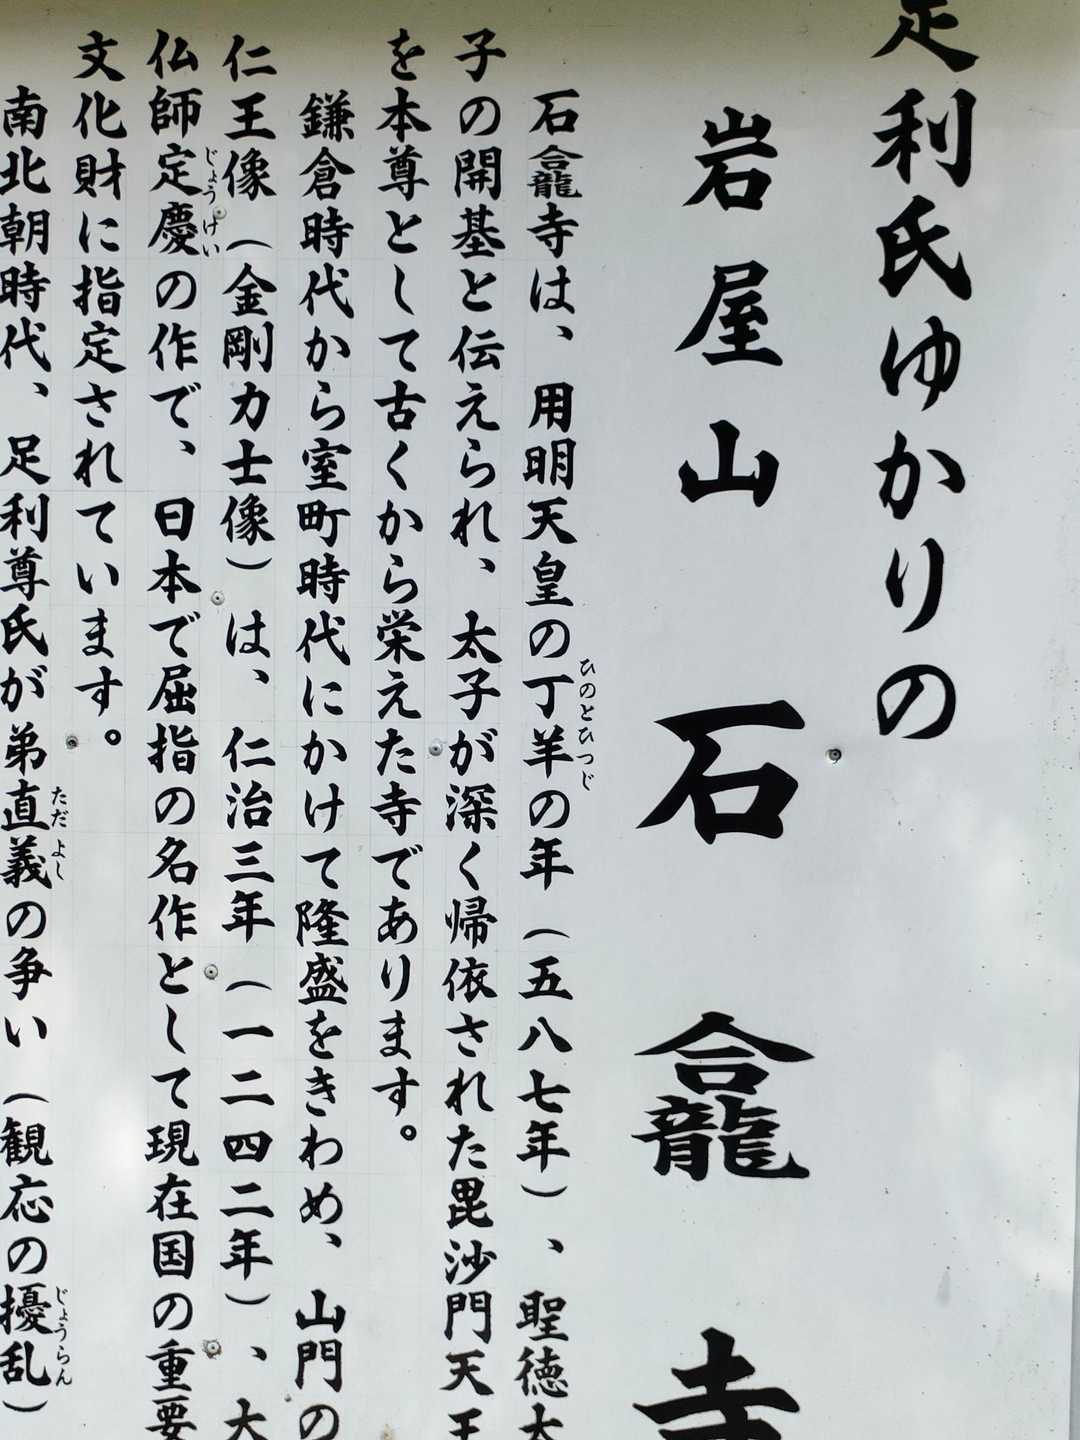 足利氏ゆかりの
岩屋山 石龕寺
石龕寺は、用明天皇の丁羊の年（五八七年）、聖徳太
ひのとひつじ
子の開基と伝えられ、太子が深く帰依された毘沙門天王
を本尊として古くから栄えた寺であります。
鎌倉時代から室町時代にかけて隆盛をきわめ、山門の
仁王像（金剛力士像）は、仁治三年（一二四二年）、大
仏師定慶の作で、日本で屈指の名作として現在国の重要
じょうけい
文化財に指定されています。
南北朝時代、足利尊氏が弟直義の争い（観応の擾乱）
ただよし
じょうらん